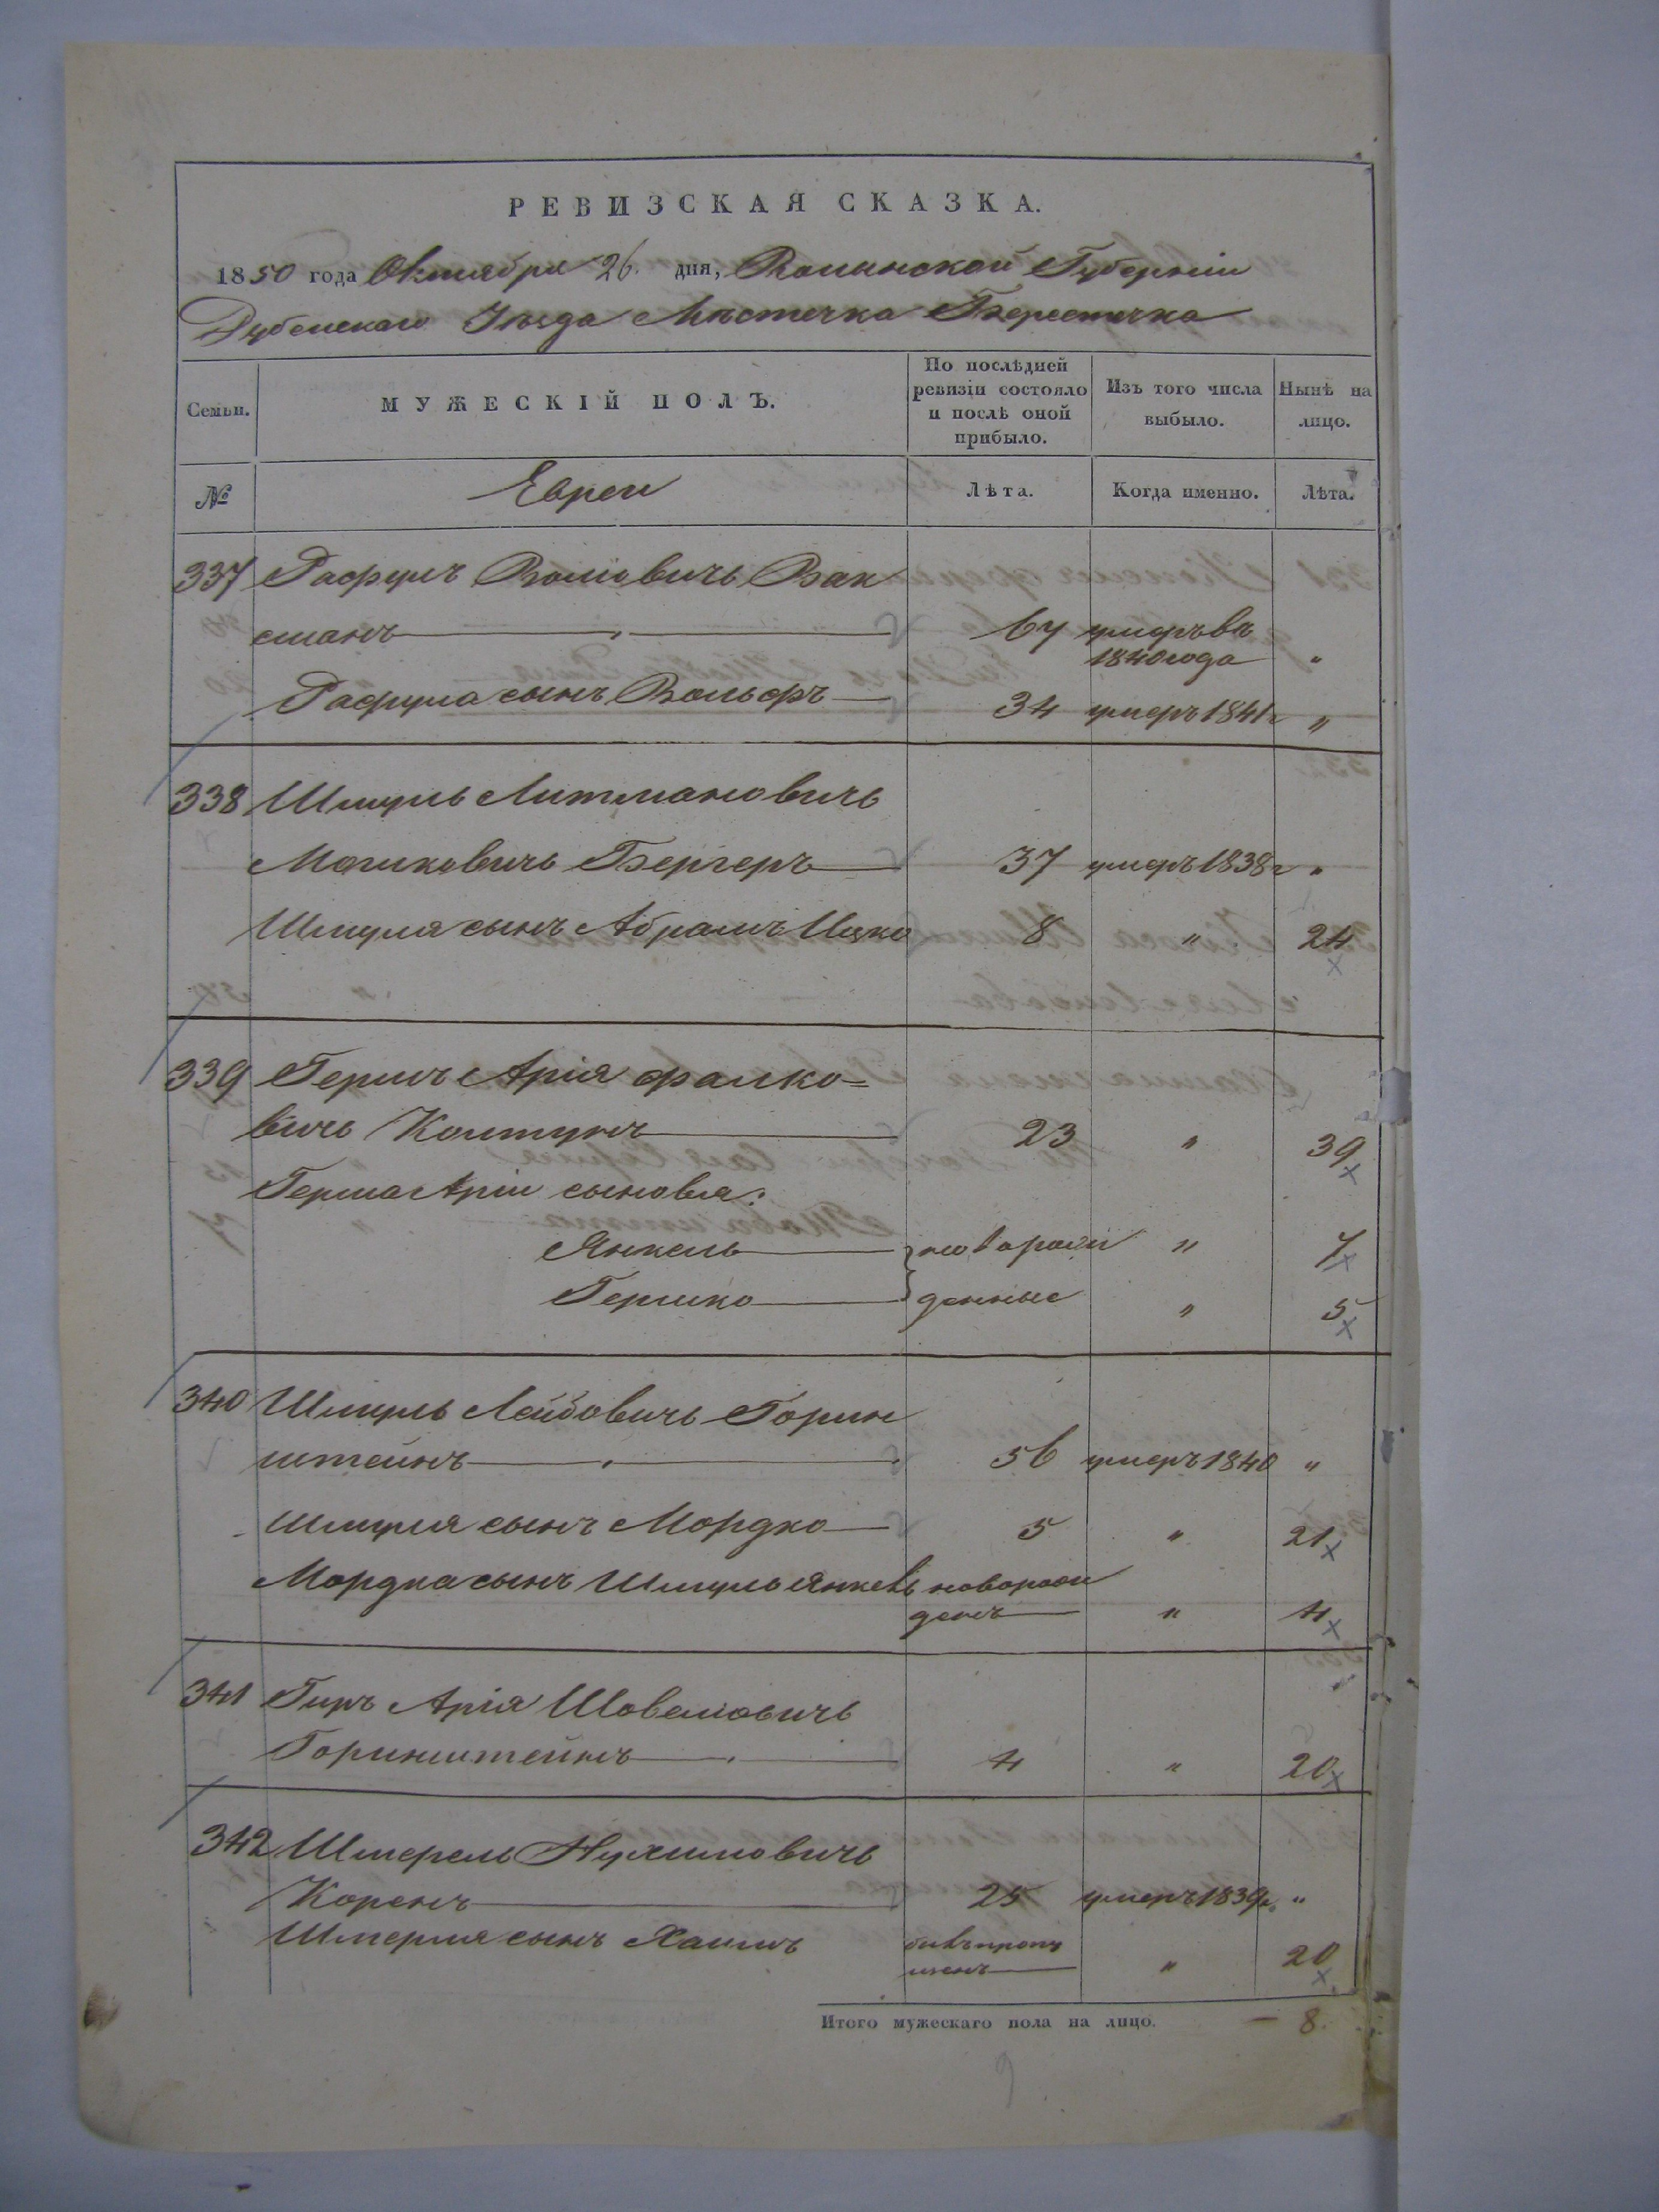 РЕВИЗСКАЯ СКАЗКА.
1850 года Октября 26. дня, Волынской Губерніи
Дубенскаго Уѣзда Мѣстечка Берестечка
Семьи.
МУЖЕСКІЙ ПОЛЪ.
По послѣдней ревизіи состояло и послѣ оной прибыло.
Изъ того числа выбыло.
Нынѣ на лицо.
№
Евреи
Лѣта.
Когда именно.
Лѣта.
337 Рафулъ Волковичъ Вак
сманъ 67 умеръ въ
1840 года "
Рафула сынъ Вольфъ 34 умеръ 1841 г "
338 Шмуль Литмановичъ
Мошковичъ Бергеръ 37 умеръ 1838 г "
Шмуля сынъ Абрамъ Ицко 8 " 24
339 Гершъ Арія Фалко=
вичъ Колтунъ 23 " 39
Герша Аріи сыновья:
Янкель новорож " 7
Гершко денные " 5
340 Шмуль Лейбовичъ Горин
штейнъ 56 умеръ 1840 "
Шмуля сынъ Мордко 5 " 21
Мордка сынъ Шмуль Янкель новорож
денъ " 4
341 Гиръ Арія Шовелювичъ
Горинштейнъ 4 " 20
342 Шмерель Нухимовичъ
Коренъ 25 умеръ 1839 г. "
Шмерля сынъ Хаимъ былъ пропу
щенъ " 20
Итого мужескаго пола на лицо. — 8.
9